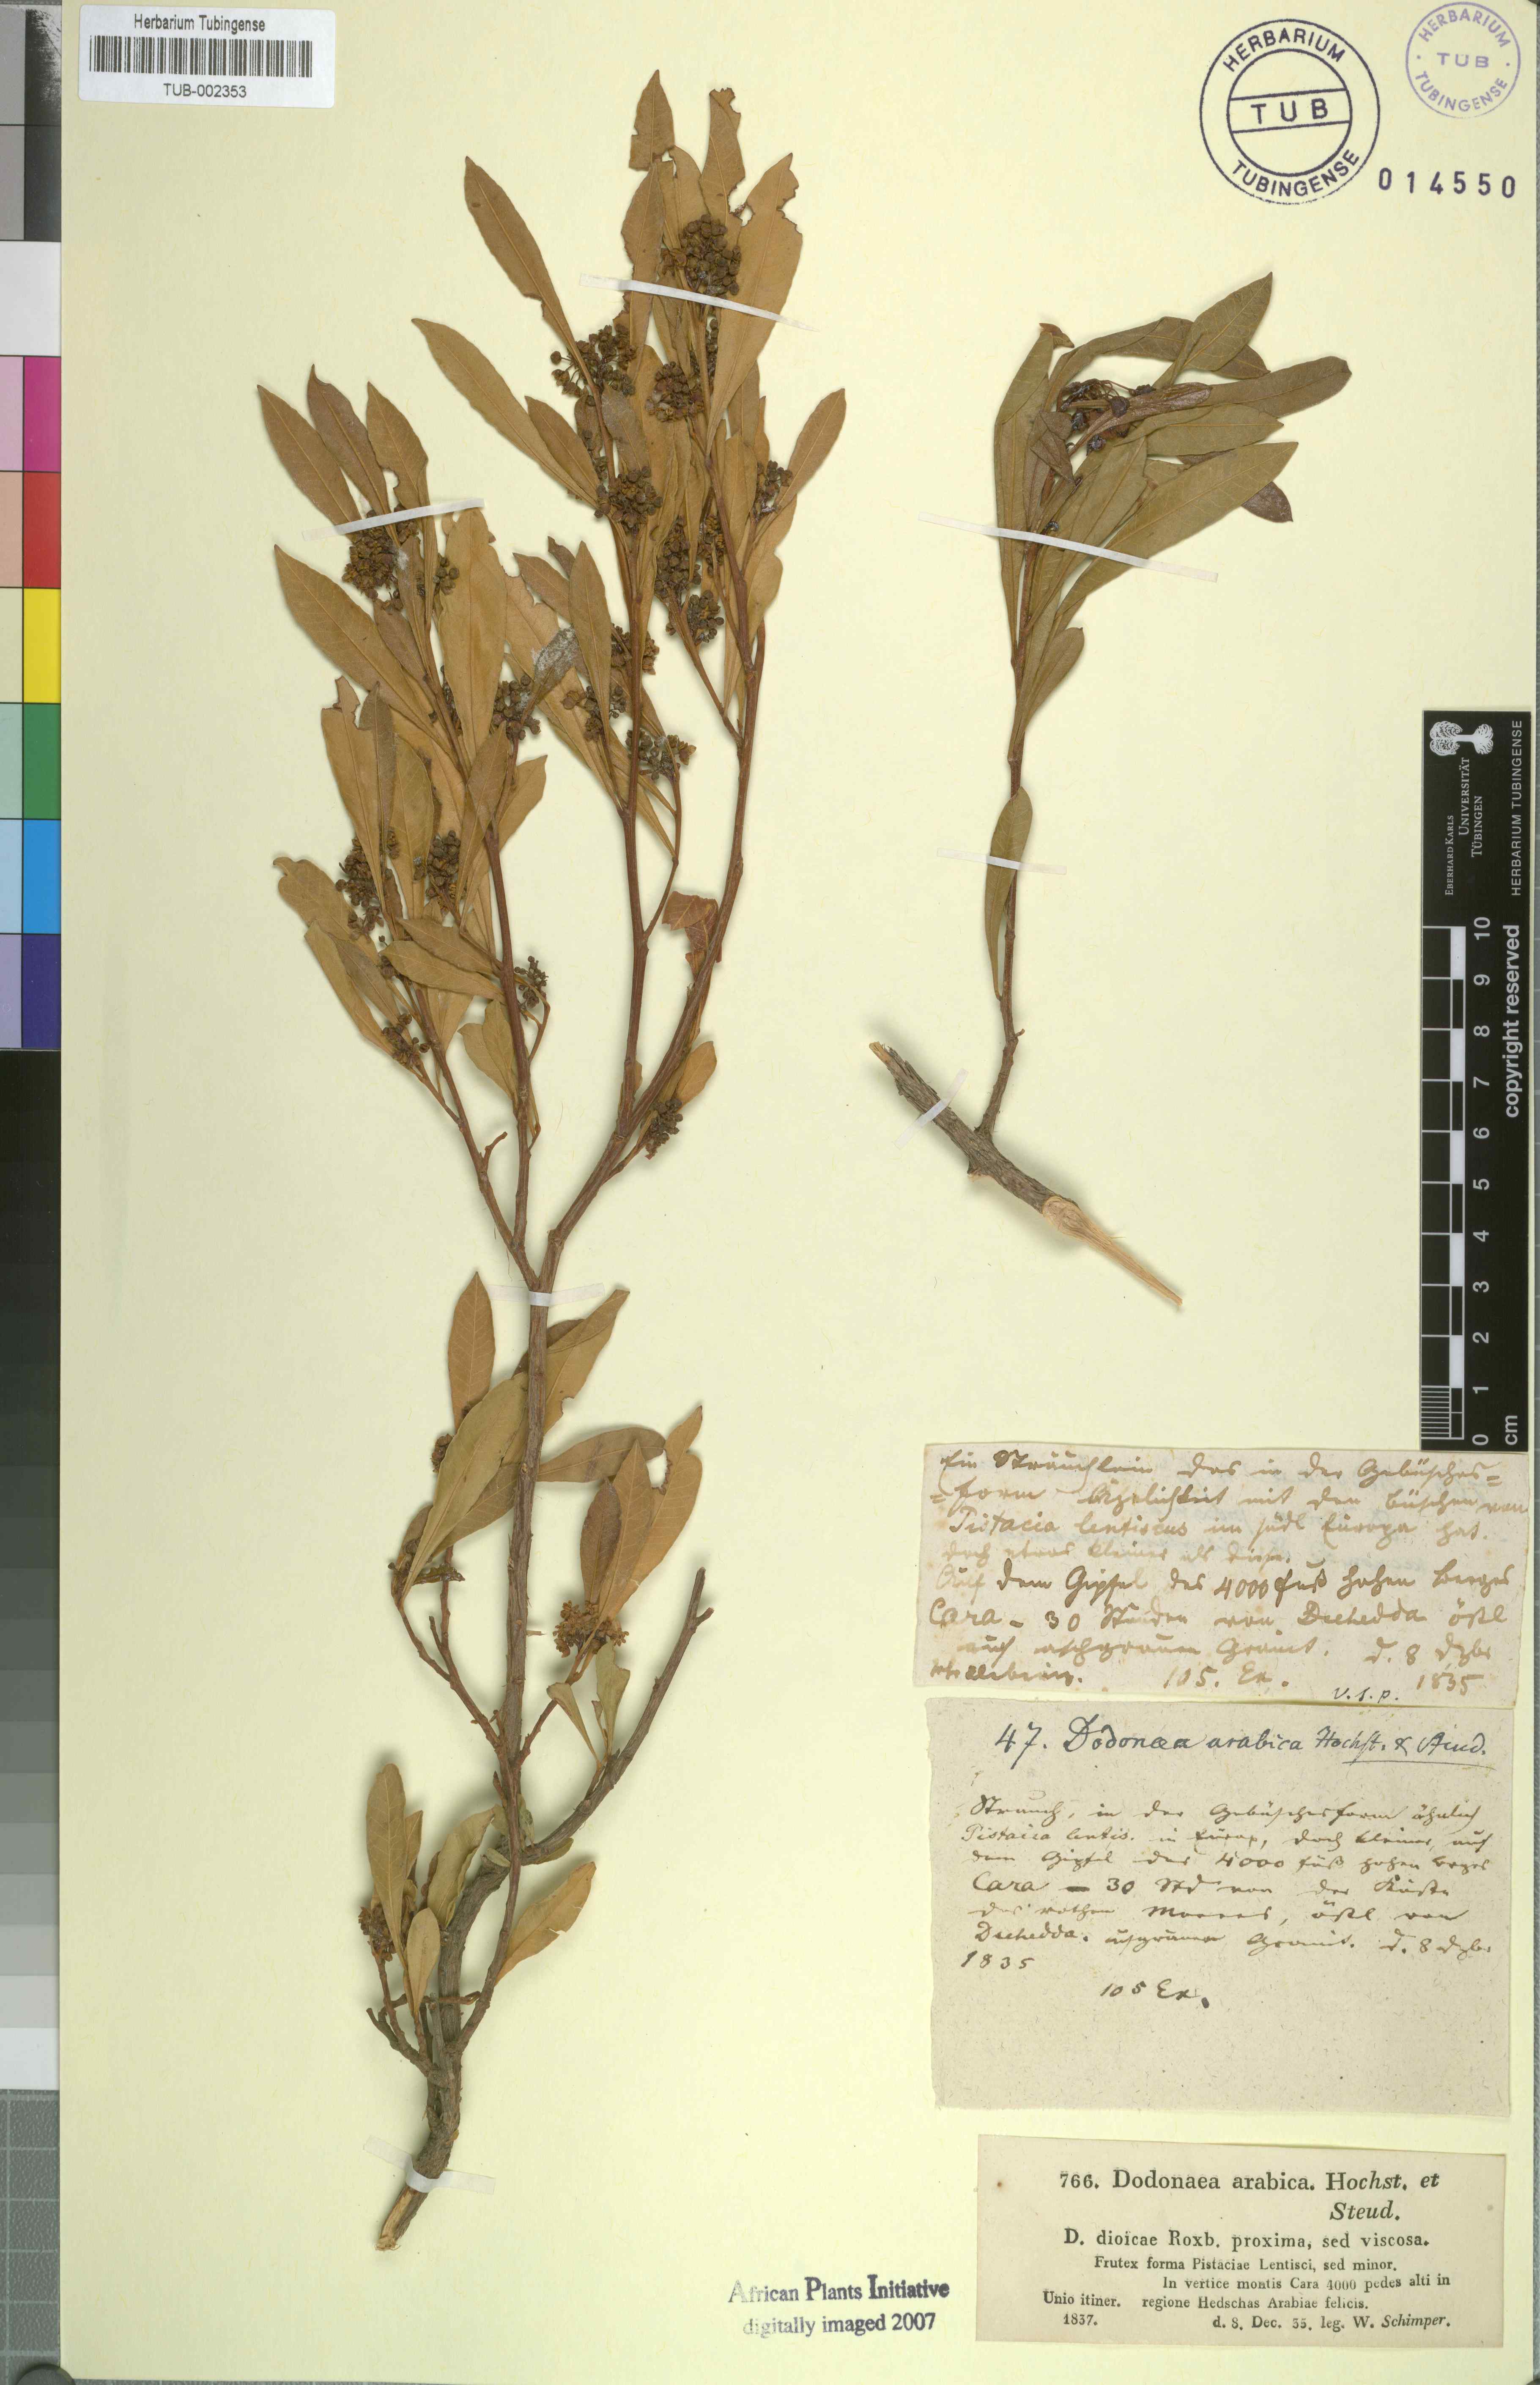 Herbarium Tubingense
TUB-002353
HERBARIUM
TUB
TUBINGENSE
HERBARIUM
TUB
TUBINGENSE
014550
EBERHARD KARLS
UNIVERSITÄT
TÜBINGEN
HERBARIUM TUBINGENSE
copyright reserved
10
9
8
7
6
5
4
3
2
1
0
cm
Ein Sträuchlein das in der Gebüsches=
=form Ähnlichkeit mit den Büschen von
Pistacia lentiscus im südl Europa hat.
doch etwas kleiner als diese.
Auf dem Gipfel des 4000 Fuß hohen Berges
Cara - 30 Stunden von Dschedda östl
auf aschgrauem Granit. d. 8 Dzbr
105. Ex. 1835
v. s. p.
47. Dodonaea arabica Hochst. & Steud.
Strauch, in der Gebüschesform ähnlich
Pistacia lentis. in Europ, doch kleiner, auf
dem Gipfel des 4000 Fuß hohen Berges
Cara - 30 Std von der Küste
des rothen Meeres, östl von
Dschedda. Granit. d. 8 Dzbr
1835
105 Ex.
766. Dodonaea arabica. Hochst. et
Steud.
D. dioicae Roxb. proxima, sed viscosa.
Frutex forma Pistaciae Lentisci, sed minor.
In vertice montis Cara 4000 pedes alti in
Unio itiner. regione Hedschas Arabiae felicis.
1837. d. 8. Dec. 35. leg. W. Schimper.
African Plants Initiative
digitally imaged 2007